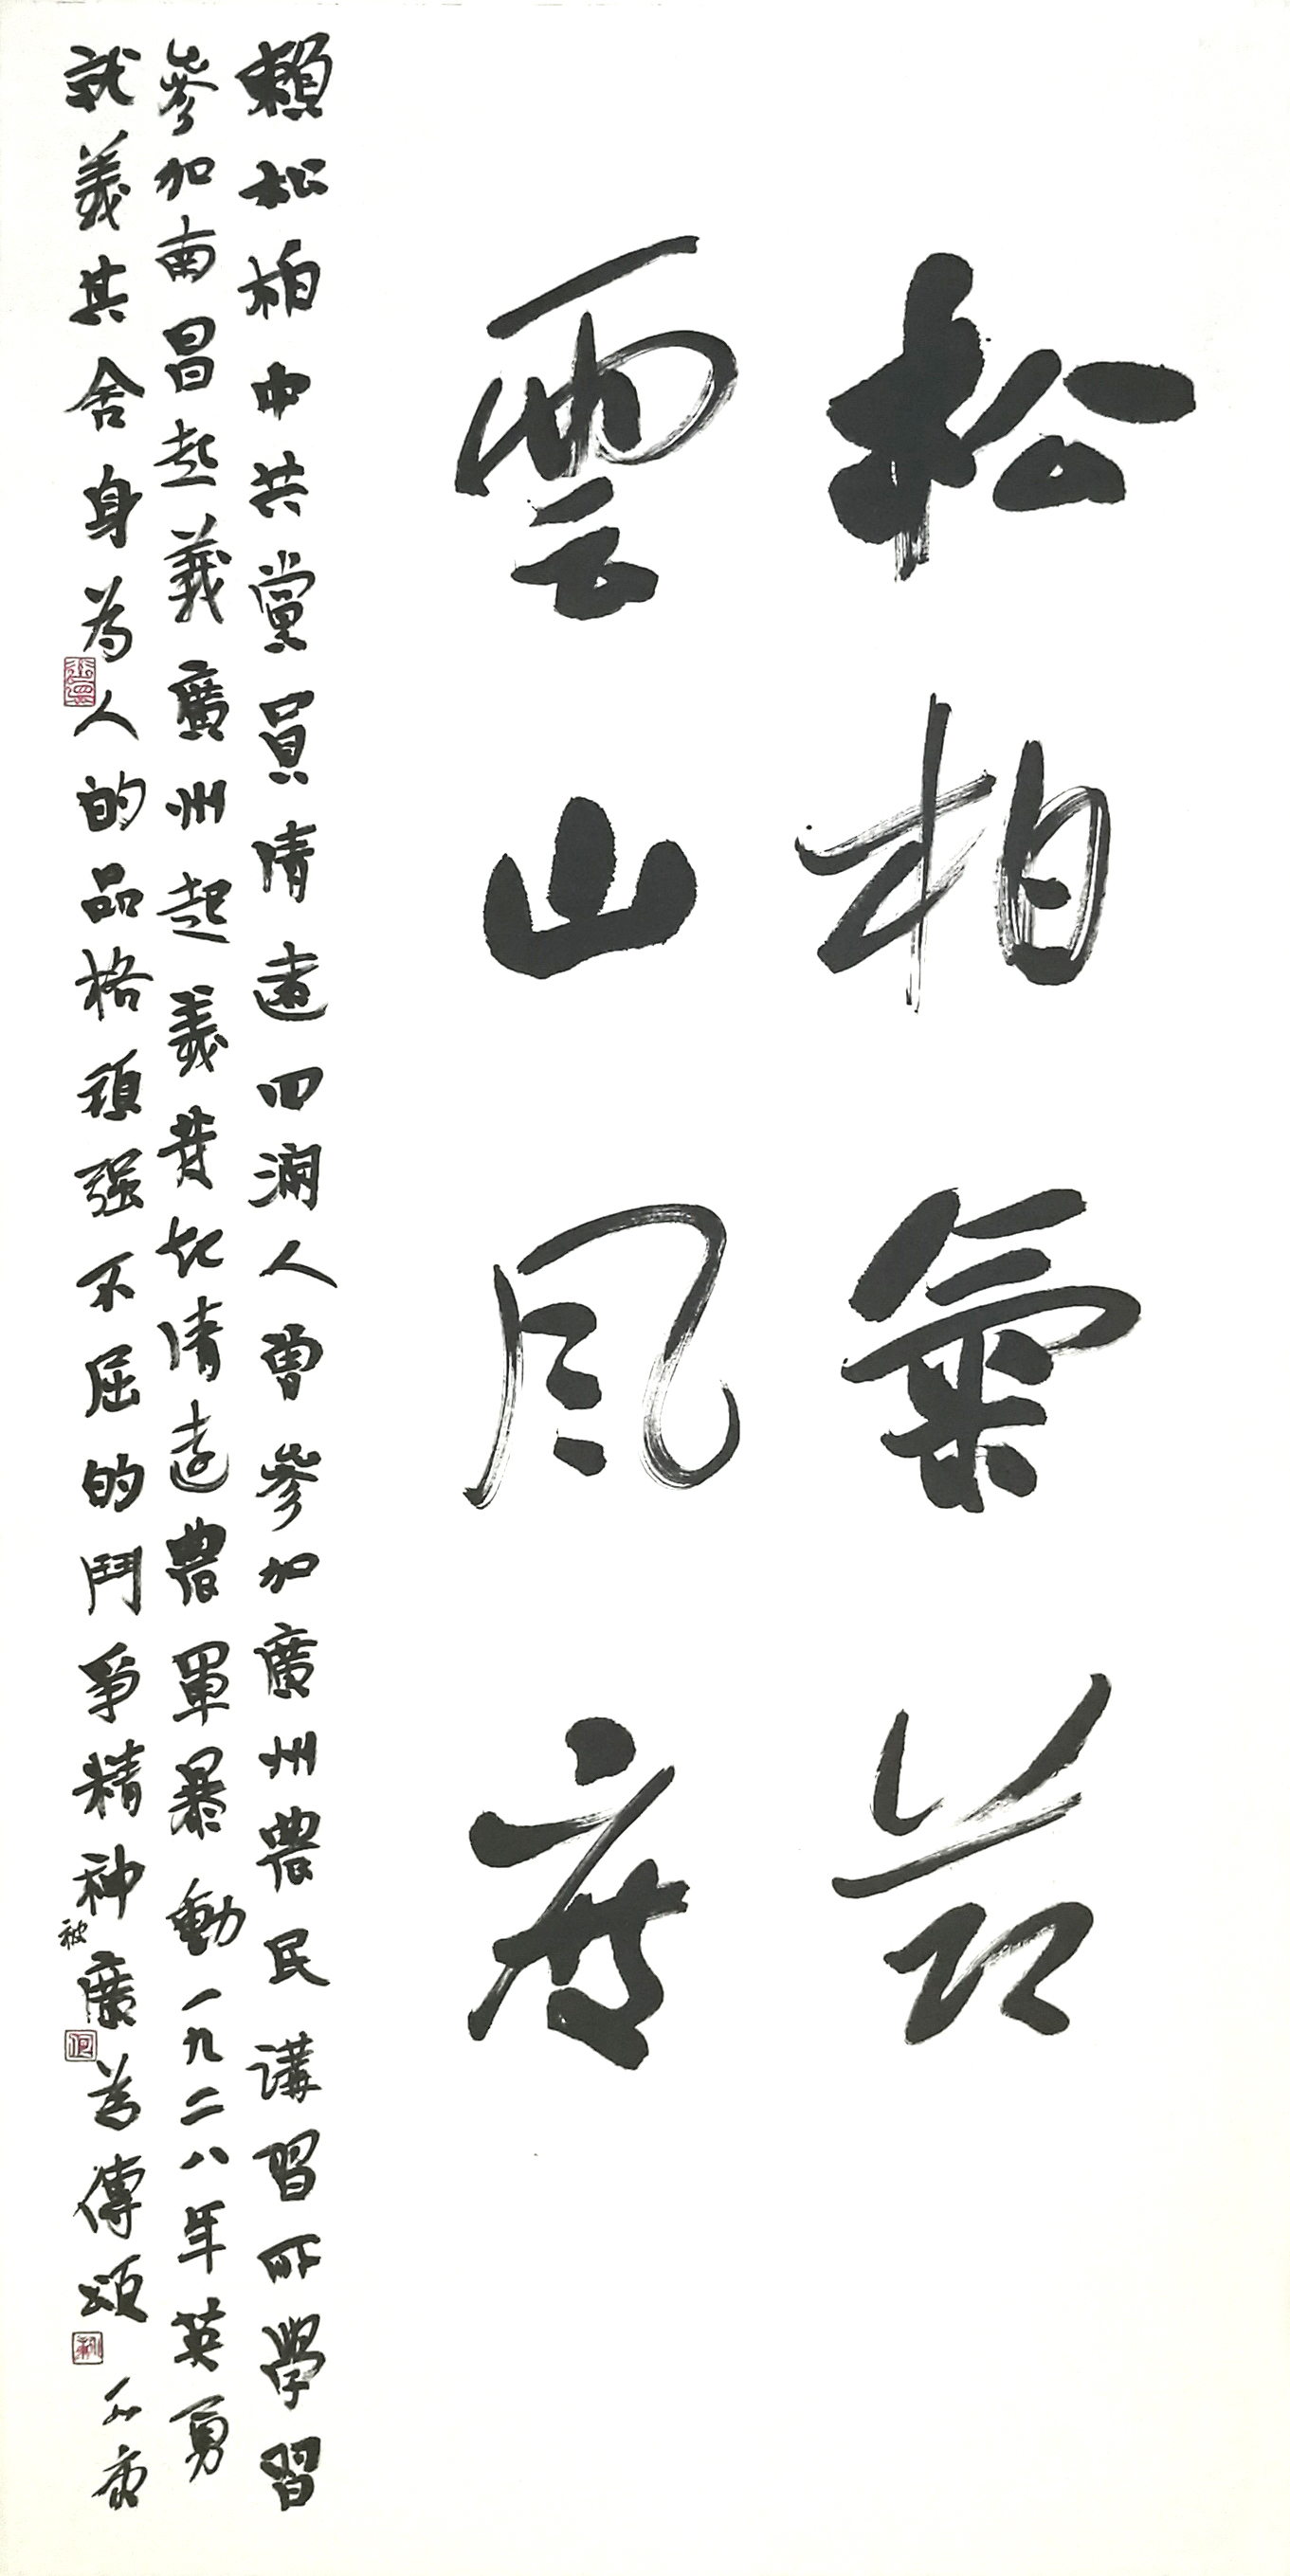 松柏氣節
雲山風度
賴松柏中共黨員清遠四洞人曾參加廣州農民講習所學習
參加南昌起義廣州起義發起清遠農軍暴動一九二八年英勇
就義其舍身為人的品格頑强不屈的鬥爭精神廣為傳頌
被